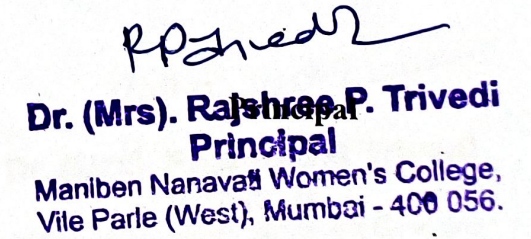 RPTrivedi
Dr. (Mrs). Rajshree P. Trivedi
Principal
Principal
Maniben Nanavati Women's College,
Vile Parle (West), Mumbai - 400 056.